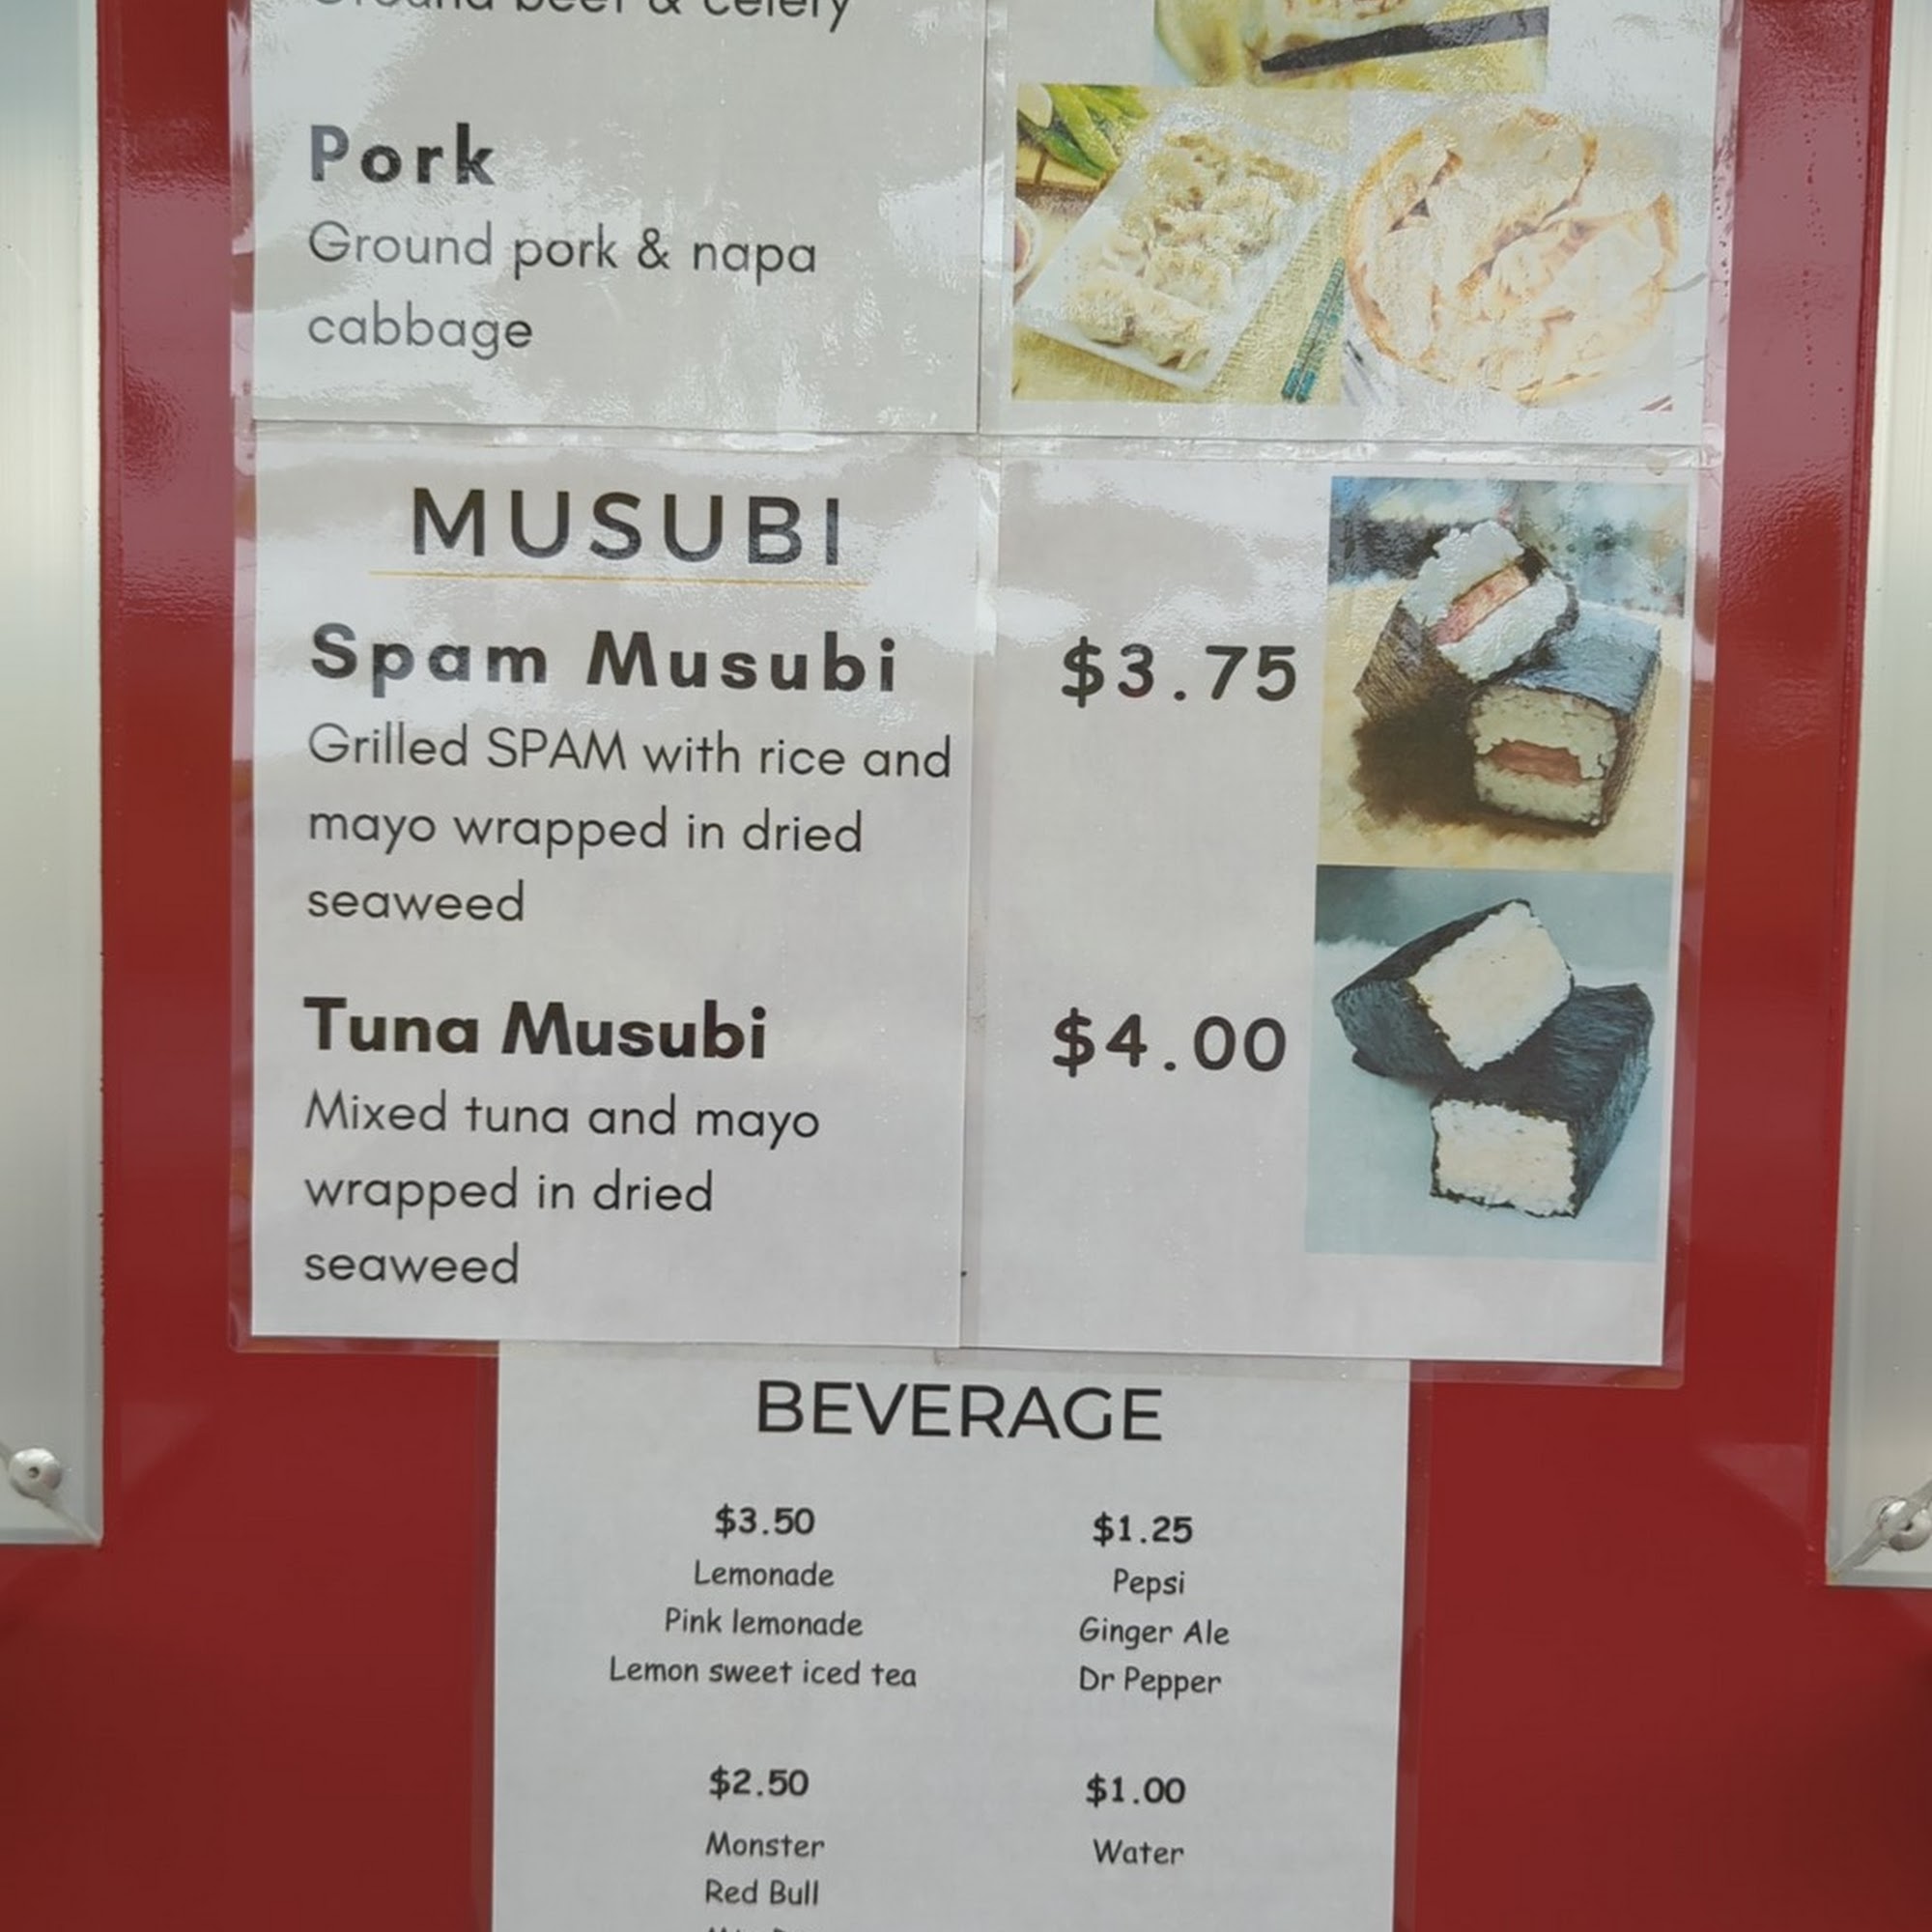 Ground beef & celery
Pork
Ground pork & napa
cabbage
MUSUBI
Spam Musubi
$3.75
Grilled SPAM with rice and
mayo wrapped in dried
seaweed
Tuna Musubi
$4.00
Mixed tuna and mayo
wrapped in dried
seaweed
BEVERAGE
$3.50
Lemonade
Pink lemonade
Lemon sweet iced tea
$1.25
Pepsi
Ginger Ale
Dr Pepper
$2.50
Monster
Red Bull
$1.00
Water